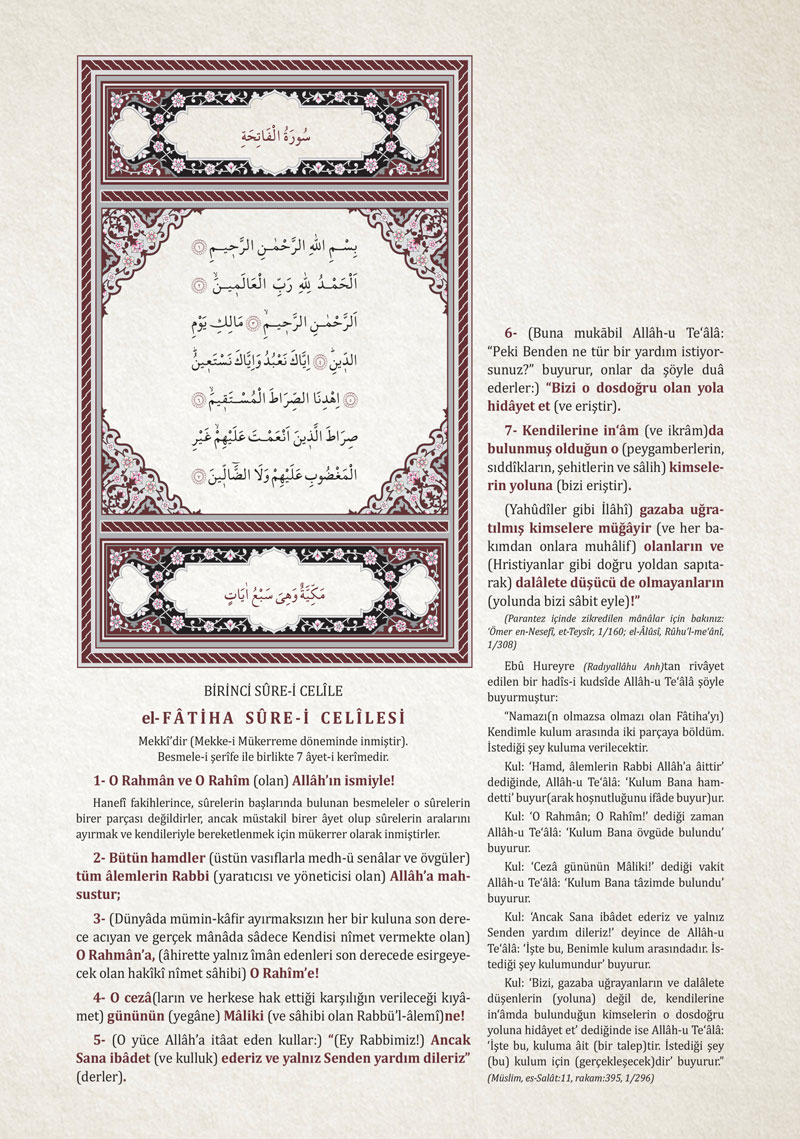 سُورَةُ الْفَاتِحَةِ
بِسْمِ اللّٰهِ الرَّحْمٰنِ الرَّح۪يمِ ﴿١﴾
اَلْحَمْدُ لِلّٰهِ رَبِّ الْعَالَم۪ينَۙ ﴿٢﴾
اَلرَّحْمٰنِ الرَّح۪يمِۙ ﴿٣﴾ مَالِكِ يَوْمِ
الدّ۪ينِۜ ﴿٤﴾ اِيَّاكَ نَعْبُدُ وَاِيَّاكَ نَسْتَع۪ينُۜ
﴿٥﴾ اِهْدِنَا الصِّرَاطَ الْمُسْتَق۪يمَۙ ﴿٦﴾
صِرَاطَ الَّذ۪ينَ اَنْعَمْتَ عَلَيْهِمْۙ غَيْرِ
الْمَغْضُوبِ عَلَيْهِمْ وَلَا الضَّٓالّ۪ينَ ﴿٧﴾
مَكِّيَّةٌ وَهِىَ سَبْعُ اٰيَاتٍ
BİRİNCİ SÛRE-İ CELÎLE
el-FÂTİHA SÛRE-İ CELÎLESİ
Mekkî’dir (Mekke-i Mükerreme döneminde inmiştir).
Besmele-i şerîfe ile birlikte 7 âyet-i kerîmedir.
1- O Rahmân ve O Rahîm (olan) Allâh’ın ismiyle!
Hanefî fakihlerince, sûrelerin başlarında bulunan besmeleler o sûrelerin
birer parçası değildirler, ancak müstakil birer âyet olup sûrelerin aralarını
ayırmak ve kendileriyle bereketlenmek için mükerrer olarak inmiştirler.
2- Bütün hamdler (üstün vasıflarla medh-ü senâlar ve övgüler)
tüm âlemlerin Rabbi (yaratıcısı ve yöneticisi olan) Allâh’a mah-
sustur;
3- (Dünyâda mümin-kâfir ayırmaksızın her bir kuluna son dere-
ce acıyan ve gerçek mânâda sâdece Kendisi nîmet vermekte olan)
O Rahmân’a, (âhirette yalnız îmân edenleri son derecede esirgeye-
cek olan hakîkî nîmet sâhibi) O Rahîm’e!
4- O cezâ(ların ve herkese hak ettiği karşılığın verileceği kıyâ-
met) gününün (yegâne) Mâliki (ve sâhibi olan Rabbü’l-âlemî)ne!
5- (O yüce Allâh’a itâat eden kullar:) “(Ey Rabbimiz!) Ancak
Sana ibâdet (ve kulluk) ederiz ve yalnız Senden yardım dileriz”
(derler).
6- (Buna mukābil Allâh-u Te‘âlâ:
“Peki Benden ne tür bir yardım istiyor-
sunuz?” buyurur, onlar da şöyle duâ
ederler:) “Bizi o dosdoğru olan yola
hidâyet et (ve eriştir).
7- Kendilerine in‘âm (ve ikrâm)da
bulunmuş olduğun o (peygamberlerin,
sıddîkların, şehitlerin ve sâlih) kimsele-
rin yoluna (bizi eriştir).
(Yahûdîler gibi İlâhî) gazaba uğra-
tılmış kimselere müğâyir (ve her ba-
kımdan onlara muhâlif) olanların ve
(Hristiyanlar gibi doğru yoldan sapıta-
rak) dalâlete düşücü de olmayanların
(yolunda bizi sâbit eyle)!”
(Parantez içinde zikredilen mânâlar için bakınız:
‘Ömer en-Nesefî, et-Teysîr, 1/160; el-Âlûsî, Rûhu’l-me‘ânî,
1/308)
Ebû Hureyre (Radıyallâhu Anh)tan rivâyet
edilen bir hadîs-i kudsîde Allâh-u Te‘âlâ şöyle
buyurmuştur:
“Namazı(n olmazsa olmazı olan Fâtiha’yı)
Kendimle kulum arasında iki parçaya böldüm.
İstediği şey kuluma verilecektir.
Kul: ‘Hamd, âlemlerin Rabbi Allâh’a âittir’
dediğinde, Allâh-u Te‘âlâ: ‘Kulum Bana ham-
detti’ buyur(arak hoşnutluğunu ifâde buyur)ur.
Kul: ‘O Rahmân; O Rahîm!’ dediği zaman
Allâh-u Te‘âlâ: ‘Kulum Bana övgüde bulundu’
buyurur.
Kul: ‘Cezâ gününün Mâliki!’ dediği vakit
Allâh-u Te‘âlâ: ‘Kulum Bana tâzimde bulundu’
buyurur.
Kul: ‘Ancak Sana ibâdet ederiz ve yalnız
Senden yardım dileriz!’ deyince de Allâh-u
Te‘âlâ: ‘İşte bu, Benimle kulum arasındadır. İs-
tediği şey kulumundur’ buyurur.
Kul: ‘Bizi, gazaba uğrayanların ve dalâlete
düşenlerin (yoluna) değil de, kendilerine
in‘âmda bulunduğun kimselerin o dosdoğru
yoluna hidâyet et’ dediğinde ise Allâh-u Te‘âlâ:
‘İşte bu, kuluma âit (bir talep)tir. İstediği şey
(bu) kulum için (gerçekleşecek)dir’ buyurur.”
(Müslim, es-Salât:11, rakam:395, 1/296)